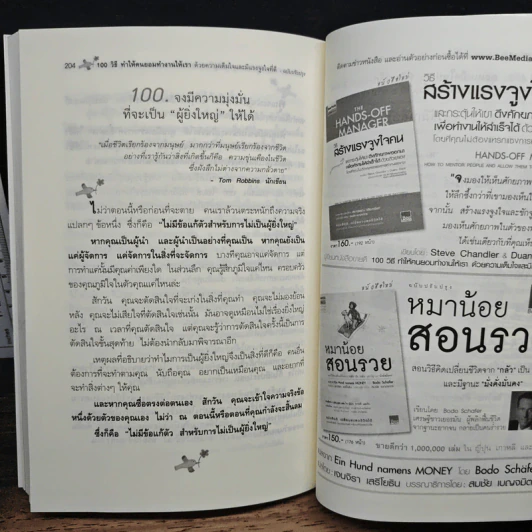 204
100 วิธี ทำให้คนยอมทำงานให้เรา ด้วยความเต็มใจและมีแรงจูงใจที่ดี
100. จงมีความมุ่งมั่น
ที่จะเป็น “ผู้ยิ่งใหญ่” ให้ได้
“เมื่อชีวิตเรียกร้องจากมนุษย์ มากกว่าที่มนุษย์เรียกร้องจากชีวิต
อย่างที่เรารู้กันว่าสิ่งที่เกิดขึ้นก็คือ ความขุ่นเคืองในชีวิต
ซึ่งฝังลึกไม่ต่างจากความกลัวตาย”
- Tom Robbins นักเขียน
ไม่ว่าตอนนี้หรือก่อนที่จะตาย คนเราล้วนตระหนักถึงความจริง
แปลกๆ ข้อหนึ่ง ซึ่งก็คือ “ไม่มีข้อแก้ตัวสำหรับการไม่เป็นผู้ยิ่งใหญ่”
หากคุณเป็นผู้นำ และผู้นำเป็นอย่างที่คุณเป็น หากคุณยังเป็น
แค่ผู้จัดการ แค่จัดการในสิ่งที่จะจัดการ บางทีคุณอาจแค่จัดการ แต่
การทำแค่นั้นมีคุณค่าเพียงใด ในส่วนลึก คุณรู้สึกภูมิใจแค่ไหน ครอบครัว
ของคุณภูมิใจในตัวคุณแค่ไหนล่ะ
สักวัน คุณจะตัดสินใจที่จะเก่งในสิ่งที่คุณทำ คุณจะไม่มองย้อน
หลัง คุณจะไม่เสียใจที่ตัดสินใจเช่นนั้น มันอาจดูเหมือนไม่ใช่เรื่องยิ่งใหญ่
อะไร ณ เวลาที่คุณตัดสินใจ แต่คุณจะรู้ว่าการตัดสินใจครั้งนี้เป็นการ
ตัดสินใจขั้นสุดท้าย ไม่ต้องนำกลับมาพิจารณาอีก
เหตุผลที่อธิบายว่าทำไมการเป็นผู้ยิ่งใหญ่จึงเป็นสิ่งที่ดีก็คือ คนอื่น
ต้องการที่จะทำตามคุณ นับถือคุณ อยากเป็นเหมือนคุณ และอยากที่
จะทำสิ่งต่างๆ ให้คุณ
และหากคุณซื่อตรงต่อตนเอง สักวัน คุณจะเข้าใจความจริงข้อ
หนึ่งด้วยตัวของคุณเอง ไม่ว่า ณ ตอนนี้หรือตอนที่คุณกำลังจะสิ้นลม
ซึ่งก็คือ “ไม่มีข้อแก้ตัว สำหรับการไม่เป็นผู้ยิ่งใหญ่”
ติดตามข่าวหนังสือ และอ่านตัวอย่างก่อนซื้อได้ที่ www.BeeMedia
วิธี
สร้างแรงจูงใจ
และกระตุ้นให้เขา ดึงศักยภา
เพื่อทำงานให้สำเร็จได้ ด้วย
HANDS-OFF M
THE
HANDS-OFF
MANAGER
วิธี
สร้างแรงจูงใจคน
160.-
“จงมองให้เห็นว่าคุณ
เขียนโดย Steve Chandler & Duan
100 วิธี ทำให้คนยอมทำงานให้เรา ด้วยความเต็มใจและมี
หมาน้อย
สอนรวย
สอนวิธีคิดเปลี่ยนชีวิตจาก “กลัว” เป็น
และมีฐานะ “มั่งคั่งมั่นคง”
หมาน้อย
สอนรวย
เขียนโดย: Bodo Schäfer
150.-
ขายดีกว่า 1,000,000 เล่ม ใน ญี่ปุ่น เกาหลี
Ein Hund namens MONEY โดย Bodo Schäfe
เจนจิรา เสรีโยธิน บรรณาธิการโดย: สมชัย เบญจมิต